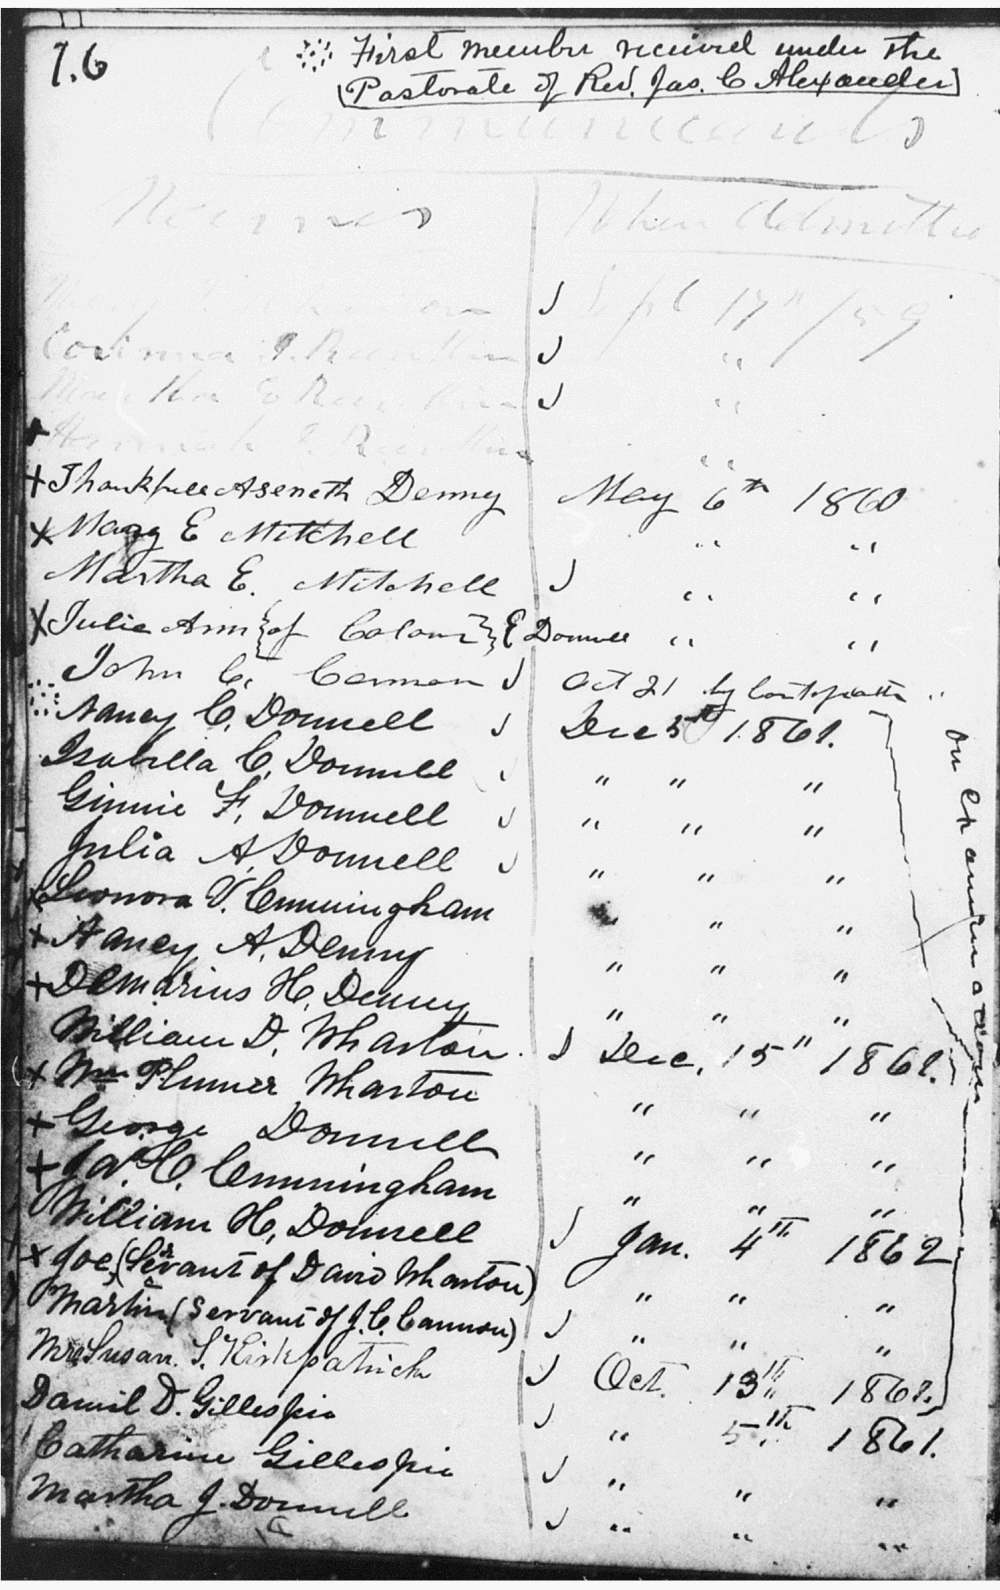 7.6
First member received under the
Pastorate of Rev. Jas. C Alexander
Communicants
Names When Admitted
Sept 17th /59
Corinna "
Martha E "
Hannah "
+ Thankfull Aseneth Denny May 6th 1860
x Mary E Mitchell " "
Martha E. Mitchell " "
x Julia Ann {of Colour} E Donnell " "
John C. Cannon Oct 21 by "
Nancy C. Donnell Dec 5th 1861.
Isabella C. Donnell " " "
Ginnie F. Donnell " " "
Julia A. Donnell " " "
x Leonora V. Cunningham " " "
+ Nancy A. Denny " " "
+ Demarius H. Denny " " "
William D. Wharton. Dec. 15" 1861.
+ Wm Plumer Wharton " " "
+ George Donnell " " "
+ Jas. C. Cunningham " " "
William H. Donnell Jan. 4th 1862
x Joe, (Servant of David Wharton) " " "
Martin (Servant of J. C. Cannon) " " "
Mrs Susan. S. Kirkpatrick Oct. 13th 1861.
Daniel D. Gillespie " 5th 1861.
Catharine Gillespie " " "
Martha J. Donnell " " "
on Examination